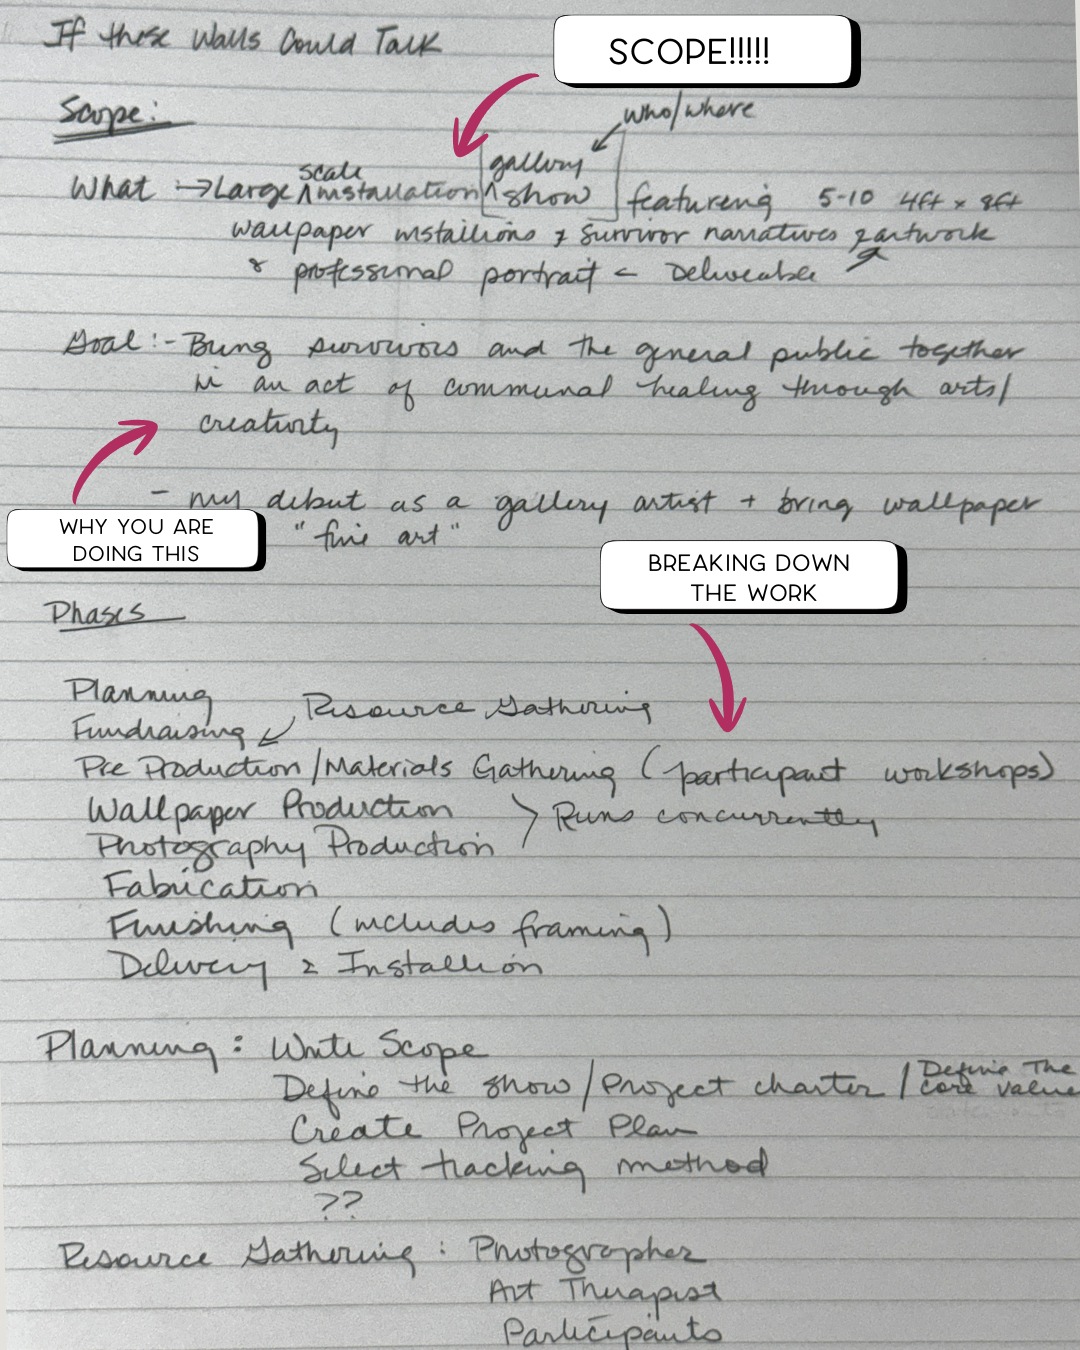 If these Walls Could Talk
SCOPE!!!!!
Scope:
who/where
scale
gallery
What → Large ^ installation ^ show featureing 5-10 4ft x 8ft
wallpaper installions & survivor narratives & artwork
& professional portrait ← Deliveable
Goal: - Bring survivors and the general public together
in an act of communal healing through arts/
creativity
- my debut as a gallery artist + bring wallpaper
"fine art"
WHY YOU ARE
DOING THIS
BREAKING DOWN
THE WORK
Phases
Planning
Resource Gathering
Fundraising
Pre Production/Materials Gathering (participant workshops)
Wallpaper Production
> Runs concurrently
Photography Production
Fabrication
Finishing (includes framing)
Delivery & Installion
Planning: Write Scope
Define the show/Project charter/Define The
core value
Create Project Plan
Select tracking method
??
Resource Gathering: Photographer
Art Therapist
Participants